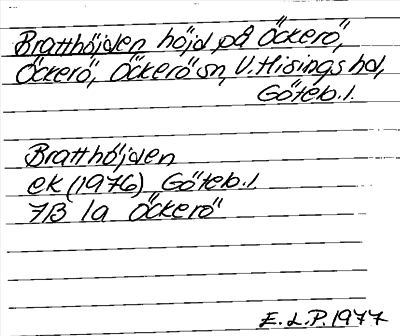 Bratthöjden höjd på Öckerö,
Öckerö, Öckerö sn, V. Hisings hd,
Göteb. l.
Bratthöjden
ek (1976) Göteb. l.
7B 1a Öckerö
E. L. P. 1977